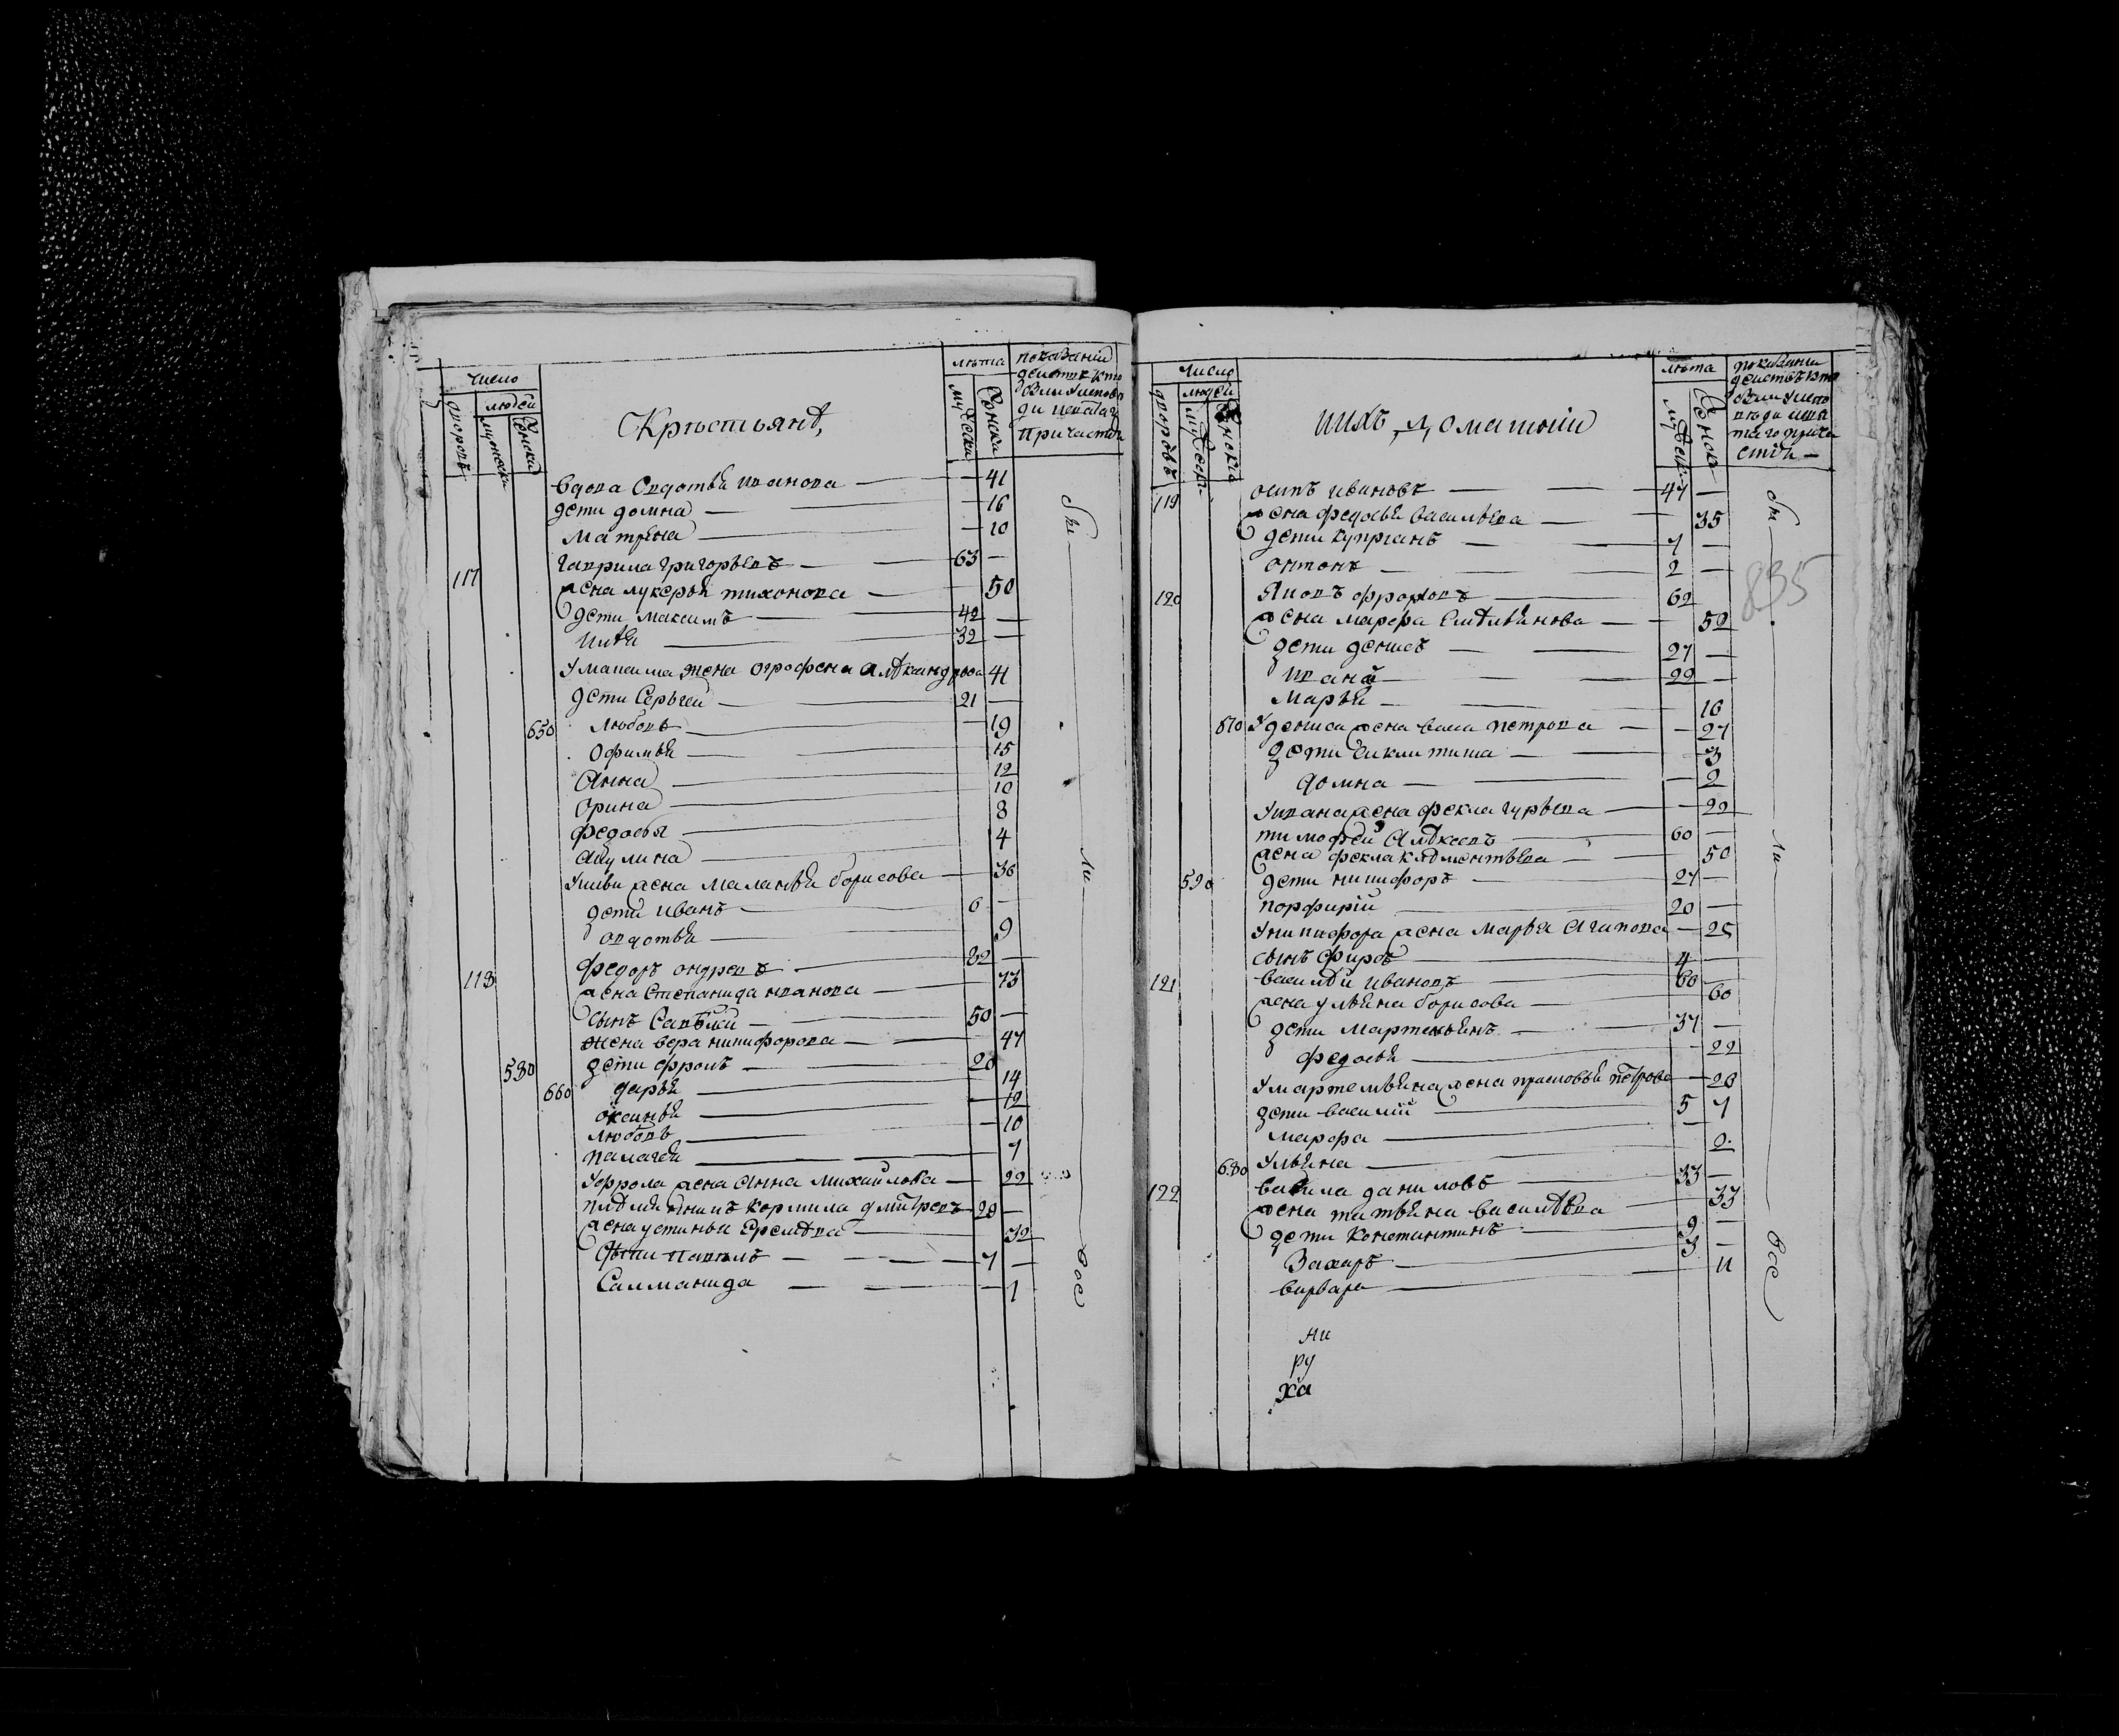 число
людей
дворовъ
мужеска
женска
Крестьянъ,
лѣта
мужеска
женска
показаніи
действъ кто
былъ у испове
ди и святаго
причастія
вдова Овдотья иванова — 41
дети домна — 16
матрена — 10
117 гаврила григорьевъ — 63 —
жена лукерья тихонова — 50
дети максимъ — 42 —
илья — 32 —
у максима жена огрофена алѣксандрова 41
дети Сергеи — 21 —
650 любовь — 19
офимья — 15
Анна — 12
орина — 10
федосья — 8
акулина — 4
у ильи жена маланья борисова — 36
дети иванъ — 6 —
овдотья — 9
118 федоръ ондревъ — 82 —
жена степанида иванова — 73
сынъ Савѣлей — 50 —
жена вера никифорова — 47
580 дети фролъ — 20
660 дарья — 14
оксинья — 12
любовь — 10
палагея — 7
у фрола жена Анна михайлова — 22
племянникъ кормила дмитревъ 28 —
жена устинья Еремѣева — 32
дети павелъ — 7 —
Салманида — 1
ны — ли — все
число
людей
дворовъ
мужеска
женска
ихъ, домашніи
лѣта
мужеска
женска
показании
действъ кто
былъ у испо
веди и свя
таго прича
стія —
119 осипъ ивановъ — 47 —
жена федосья васильева — 35
дети купрianъ — 7 —
онтонъ — 2 —
835
120 Яковъ фроловъ — 62 —
жена марфа Емѣльянова — 52
дети денисъ — 27 —
иванъ — 22 —
марья — 16
670 у дениса жена васа петрова — 27
дети — 3
домна — 2
у ивана жена фекла гурьева — 22
тимофеи Алѣксеевъ — 60 —
жена фекла клементьева — 50
590 дети никифоръ — 27 —
порфирiй — 20 —
у никифора жена марья агапова — 25
сынъ фирсъ — 4 —
121 василѣи ивановъ — 60 —
жена ульяна борисова — 60
дети мартемьянъ — 37 —
федосья — 22
у мартемьяна жена прасковья петрова — 28
дети василiй — 5 7
марфа —
680 ульяна — 2
122 вавила даниловъ — 33 —
жена татьяна василѣва — 33
дети констинтинъ — 9 —
Захаръ — 3 —
варвара — 11
ны — ли — все
ни
ру
ха